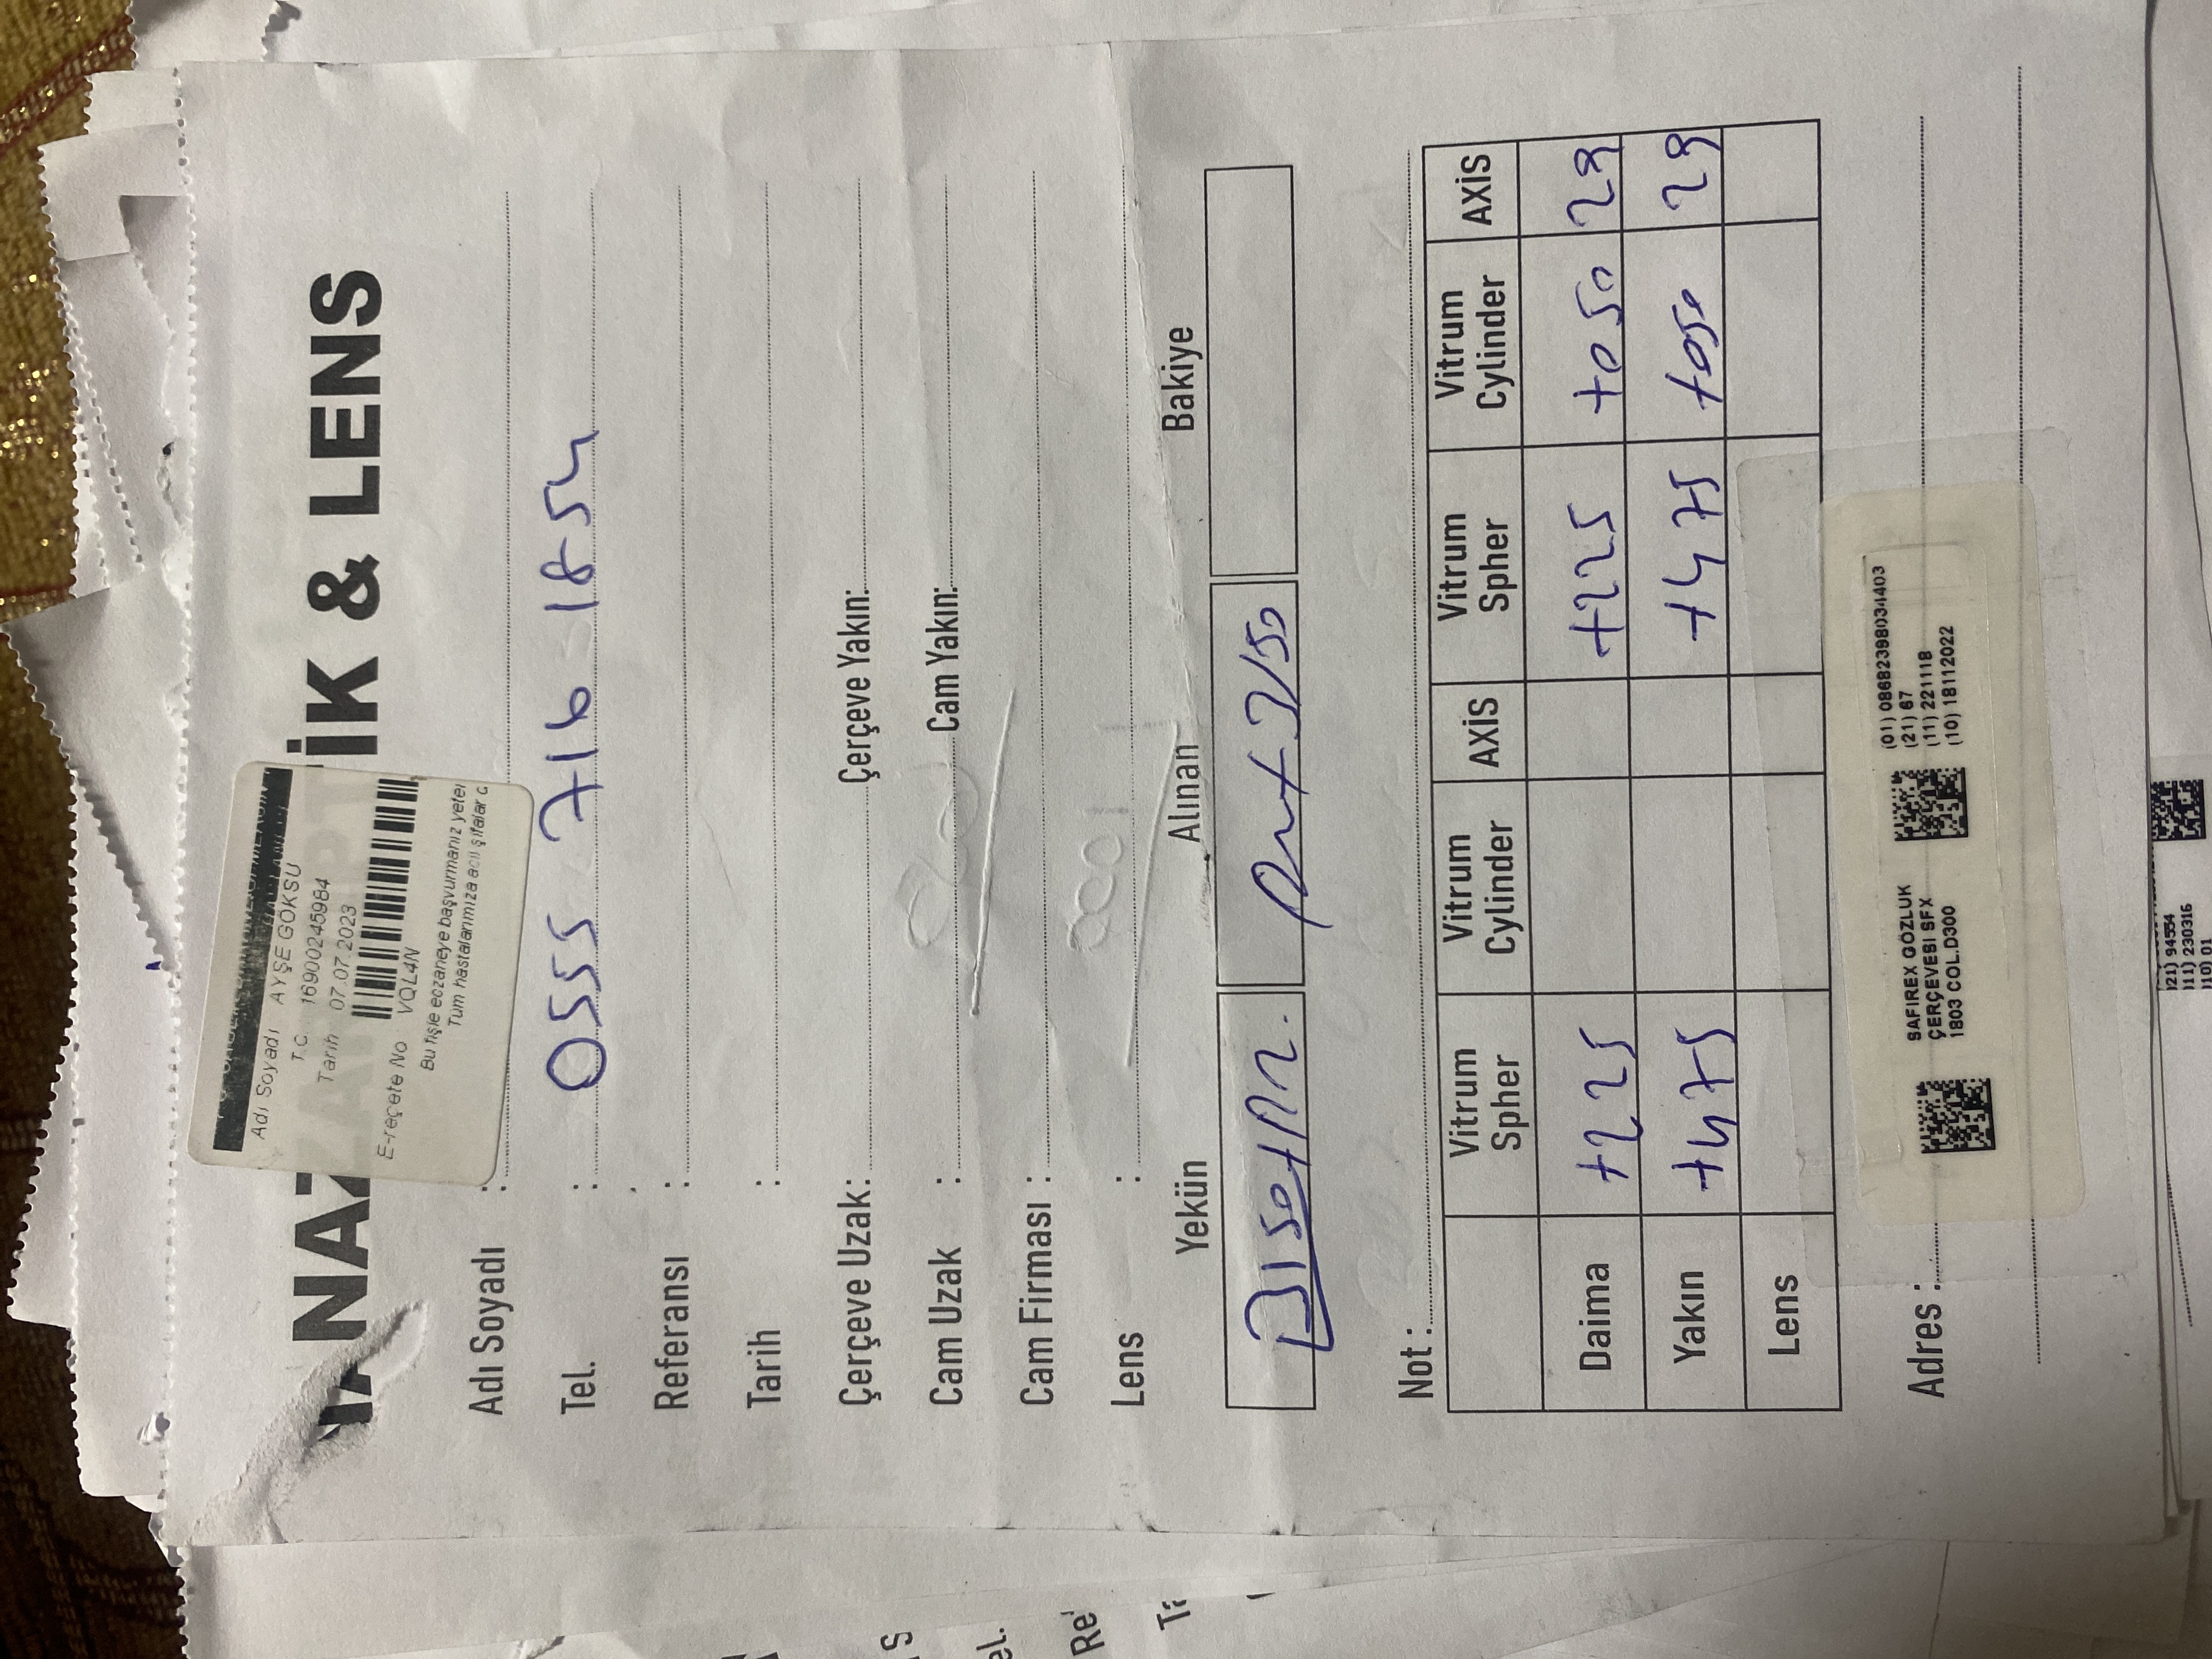 T.C. SAĞLIK BAKANLIĞI MERSİN
Adı Soyadı AYŞE GÖKSU
T.C. 16900245984
Tarih 07.07.2023
E-reçete No VQL4N
Bu fişle eczaneye başvurmanız yeter
Tüm hastalarımıza acil şifalar d
NAZ İK & LENS
Adı Soyadı :
Tel. : 0555 716 1854
Referansı :
Tarih :
Çerçeve Uzak: Çerçeve Yakın:
Cam Uzak : Cam Yakın:
Cam Firması :
Lens :
Yekün Alınan Bakiye
Not :
Vitrum Spher Vitrum Cylinder AXİS Vitrum Spher Vitrum Cylinder AXİS
Daima +225 +225 +050 29
Yakın +475 +475 +050 29
Lens
SAFIREX GÖZLUK
ÇERÇEVESI SFX
1803 COL.D300
(01) 08682398034403
(21) 67
(11) 221118
(10) 18112022
Adres :
021) 94554
011) 230316
010) 01